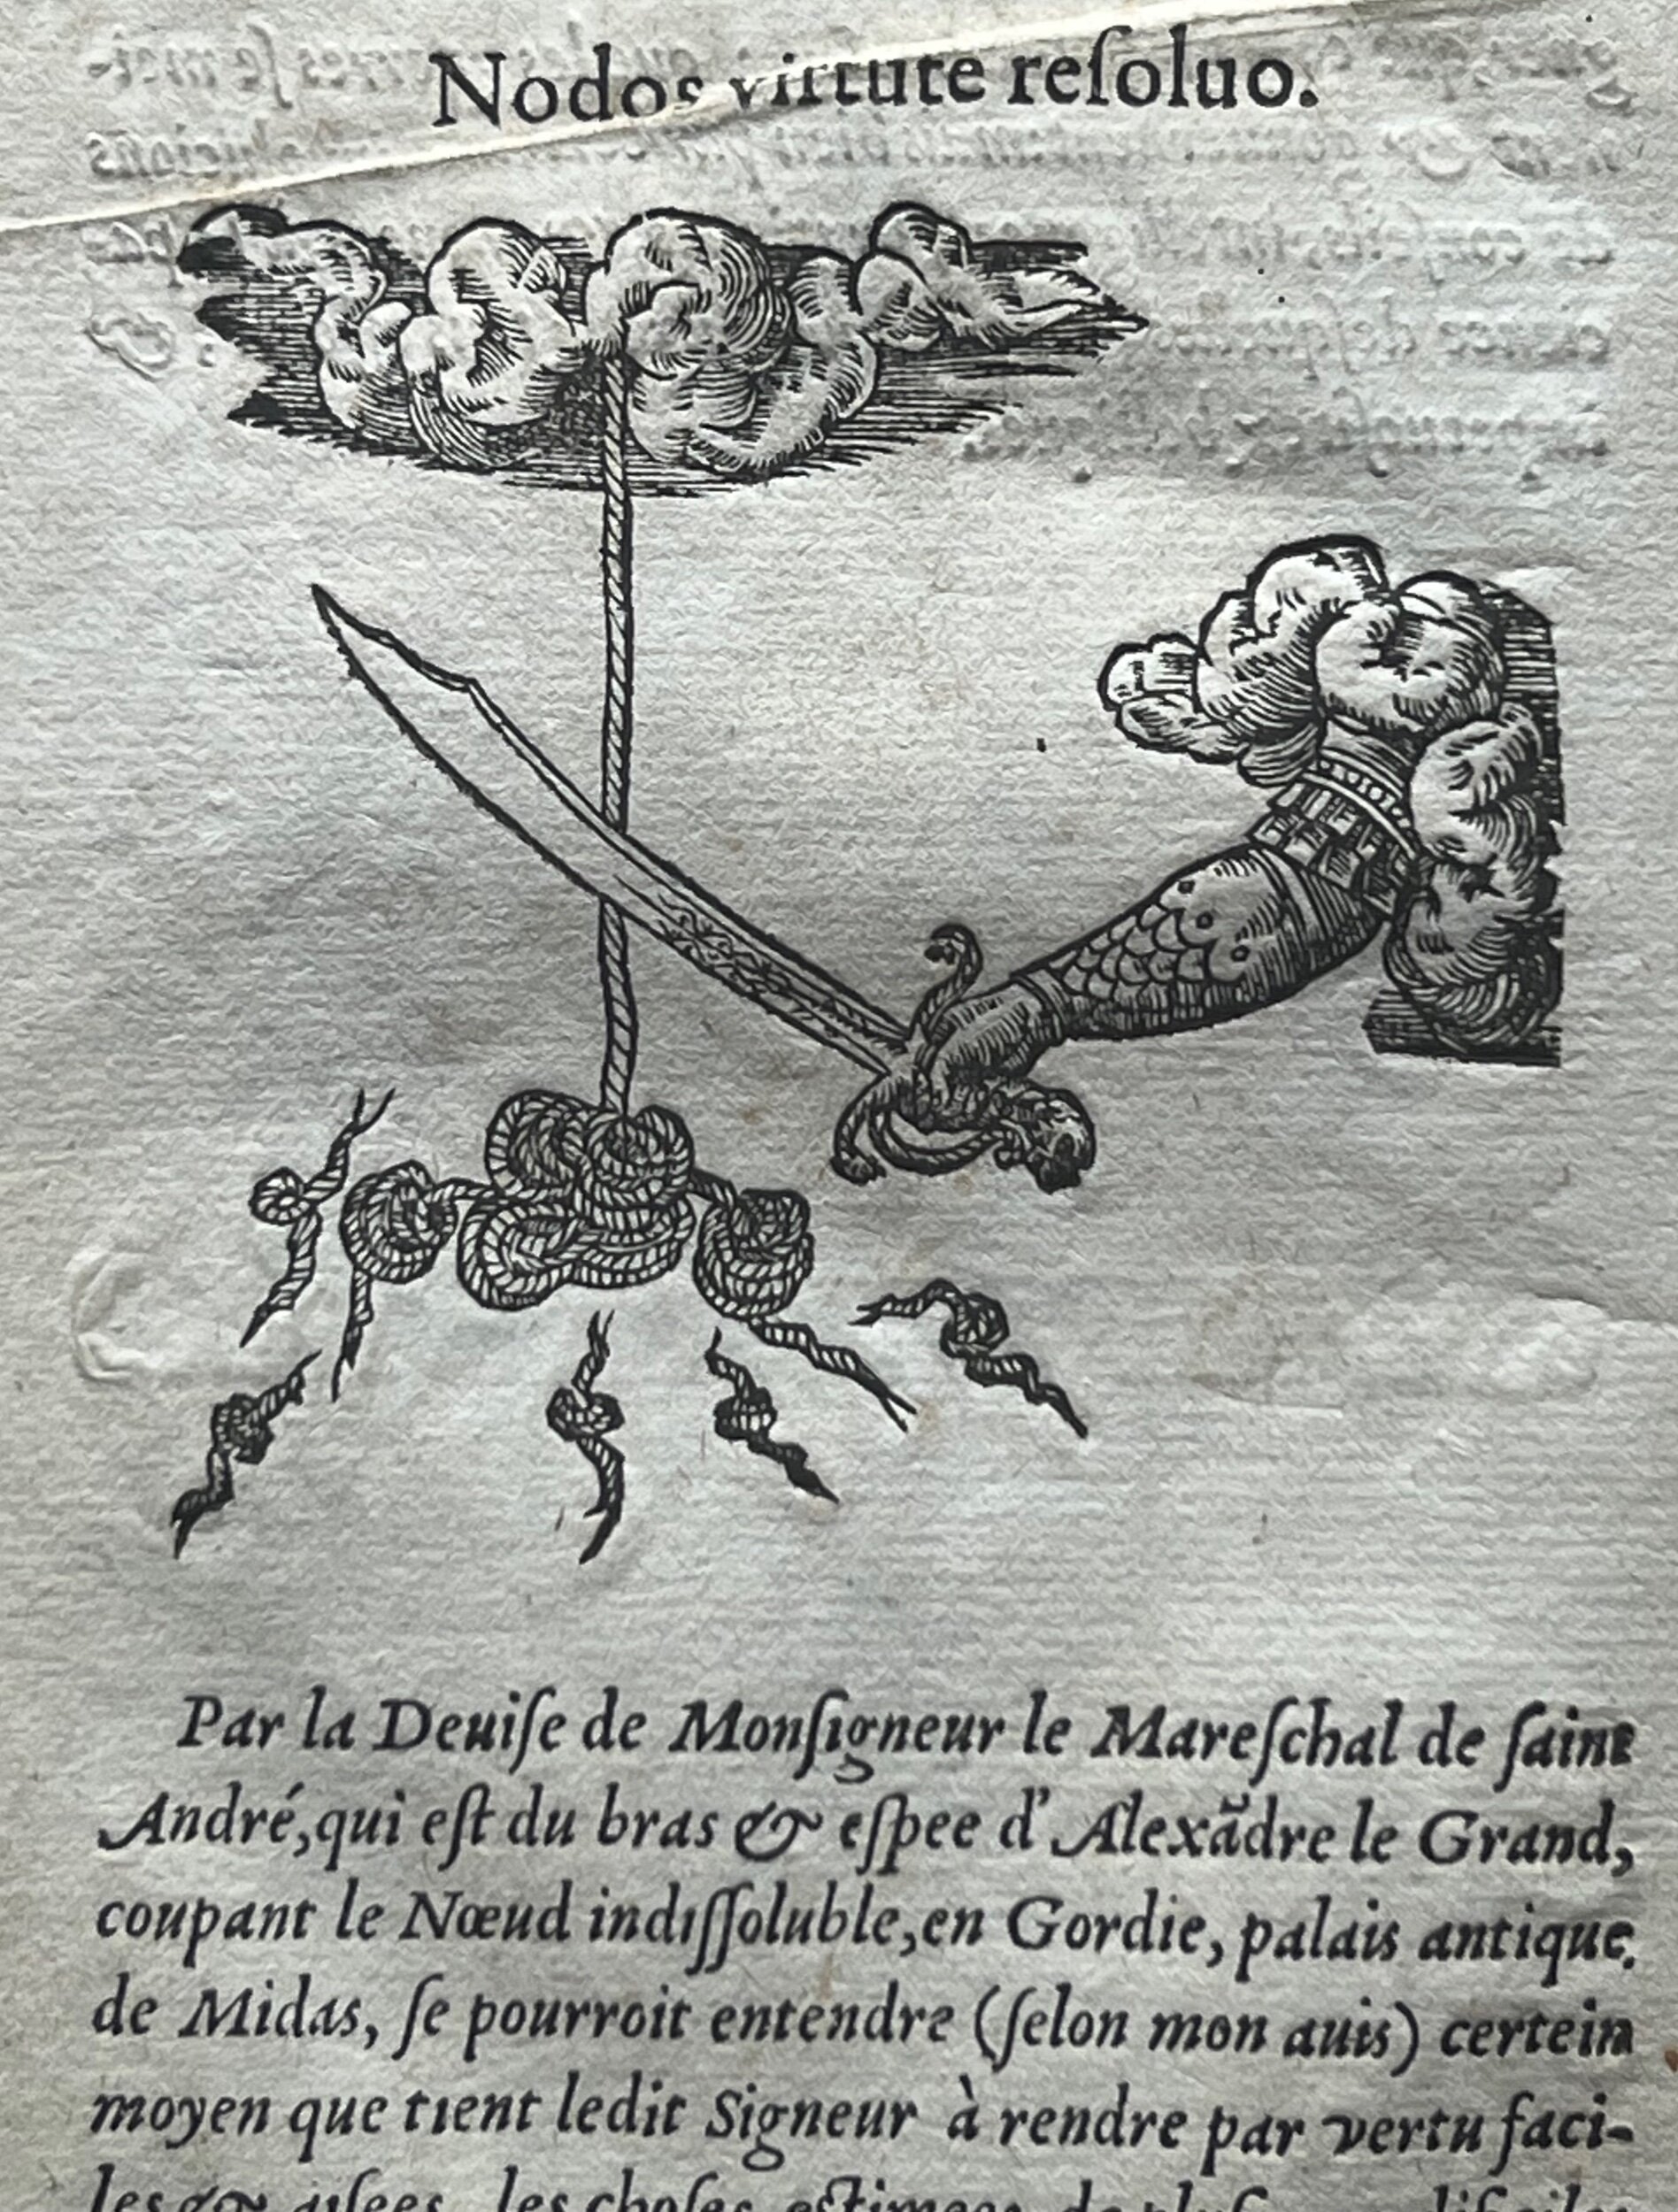 Nodos virtute reſoluo.
Par la Deuiſe de Monſigneur le Mareſchal de ſaint
André, qui eſt du bras & eſpee d'Alexãdre le Grand,
coupant le Nœud indiſſoluble, en Gordie, palais antique
de Midas, ſe pourroit entendre (ſelon mon auis) certein
moyen que tient ledit Signeur à rendre par vertu faci-
les & aiſees, les choſes eſtimees de plus